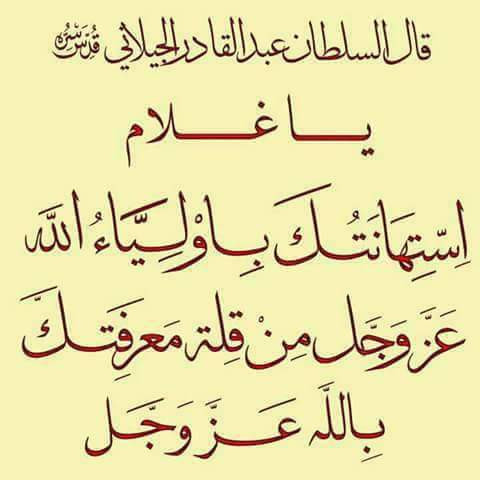 قال السلطان عبد القادر الجيلاني قُدِّسَ سِرُّهُ
يا غلام
اِسْتِهَانَتُكَ بِاوْلِيَاءُ اللّٰه
عَزَّ وَجَل مِنْ قِلة مَعرِفَتِكَ
بِاللَّه عَزَّ وَجَّل